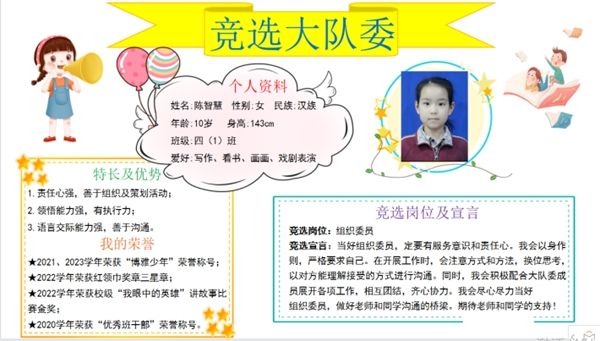 竞选大队委
个人资料
姓名:陈智慧 性别:女 民族:汉族
年龄:10岁 身高:143cm
班级:四（1）班
爱好:写作、看书、画画、戏剧表演
特长及优势
1. 责任心强，善于组织及策划活动；
2. 领悟能力强，有执行力；
3. 语言交际能力强，善于沟通。
我的荣誉
★2021、2023学年荣获“博雅少年”荣誉称号；
★2022学年荣获红领巾奖章三星章；
★2022学年荣获校级“我眼中的英雄”讲故事比
赛金奖；
★2020学年荣获“优秀班干部”荣誉称号。
竞选岗位及宣言
竞选岗位: 组织委员
竞选宣言: 当好组织委员，定要有服务意识和责任心。我会以身作
则，严格要求自己。在开展工作时，会注意方式和方法，换位思考，
以对方能理解接受的方式进行沟通。同时，我会积极配合大队委成
员展开各项工作，相互团结，齐心协力。我会尽心尽力当好
组织委员，做好老师和同学沟通的桥梁。期待老师和同学的支持！